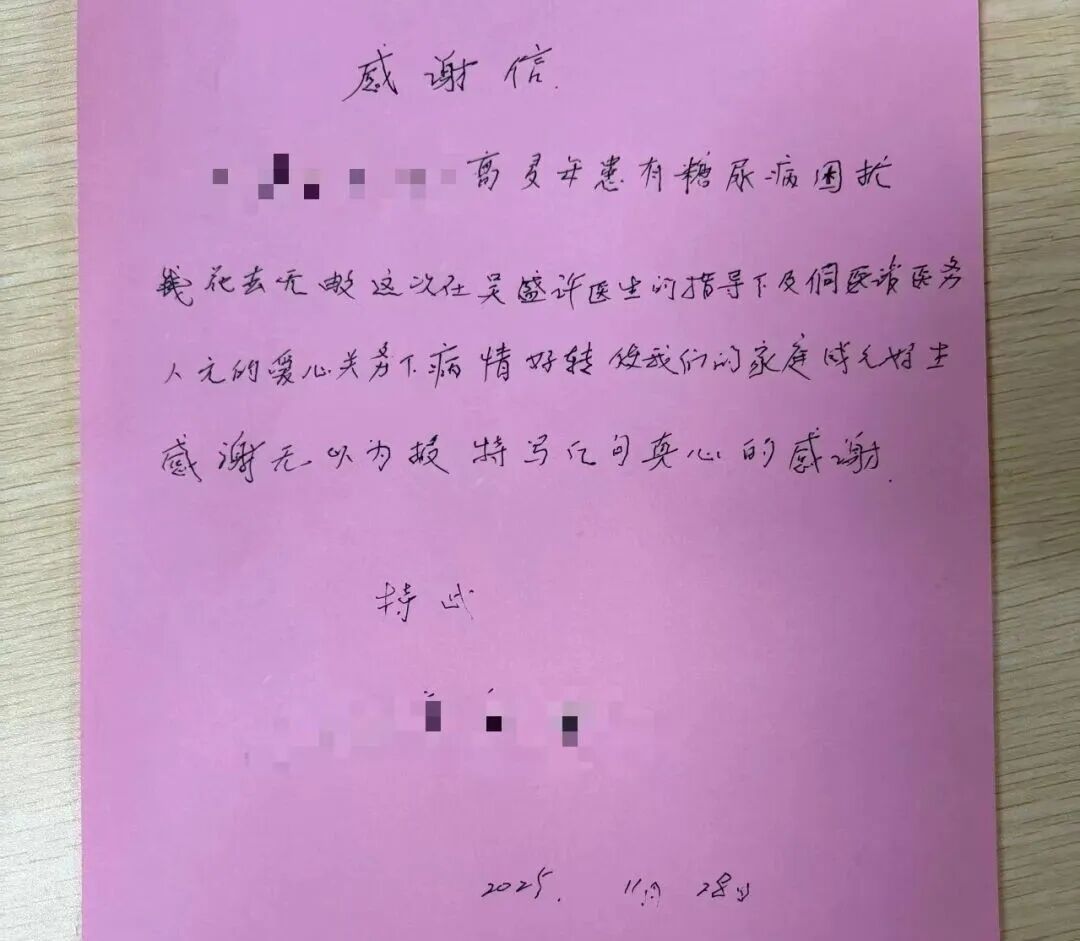 感谢信
多年患有糖尿病困扰
钱花去无数这次在吴盛许医生的指导下及医务
人元的爱心关务下病情好转使我们的家庭
感谢无以为报 特写几句真心的感谢.
特此
2025. 11月 28日